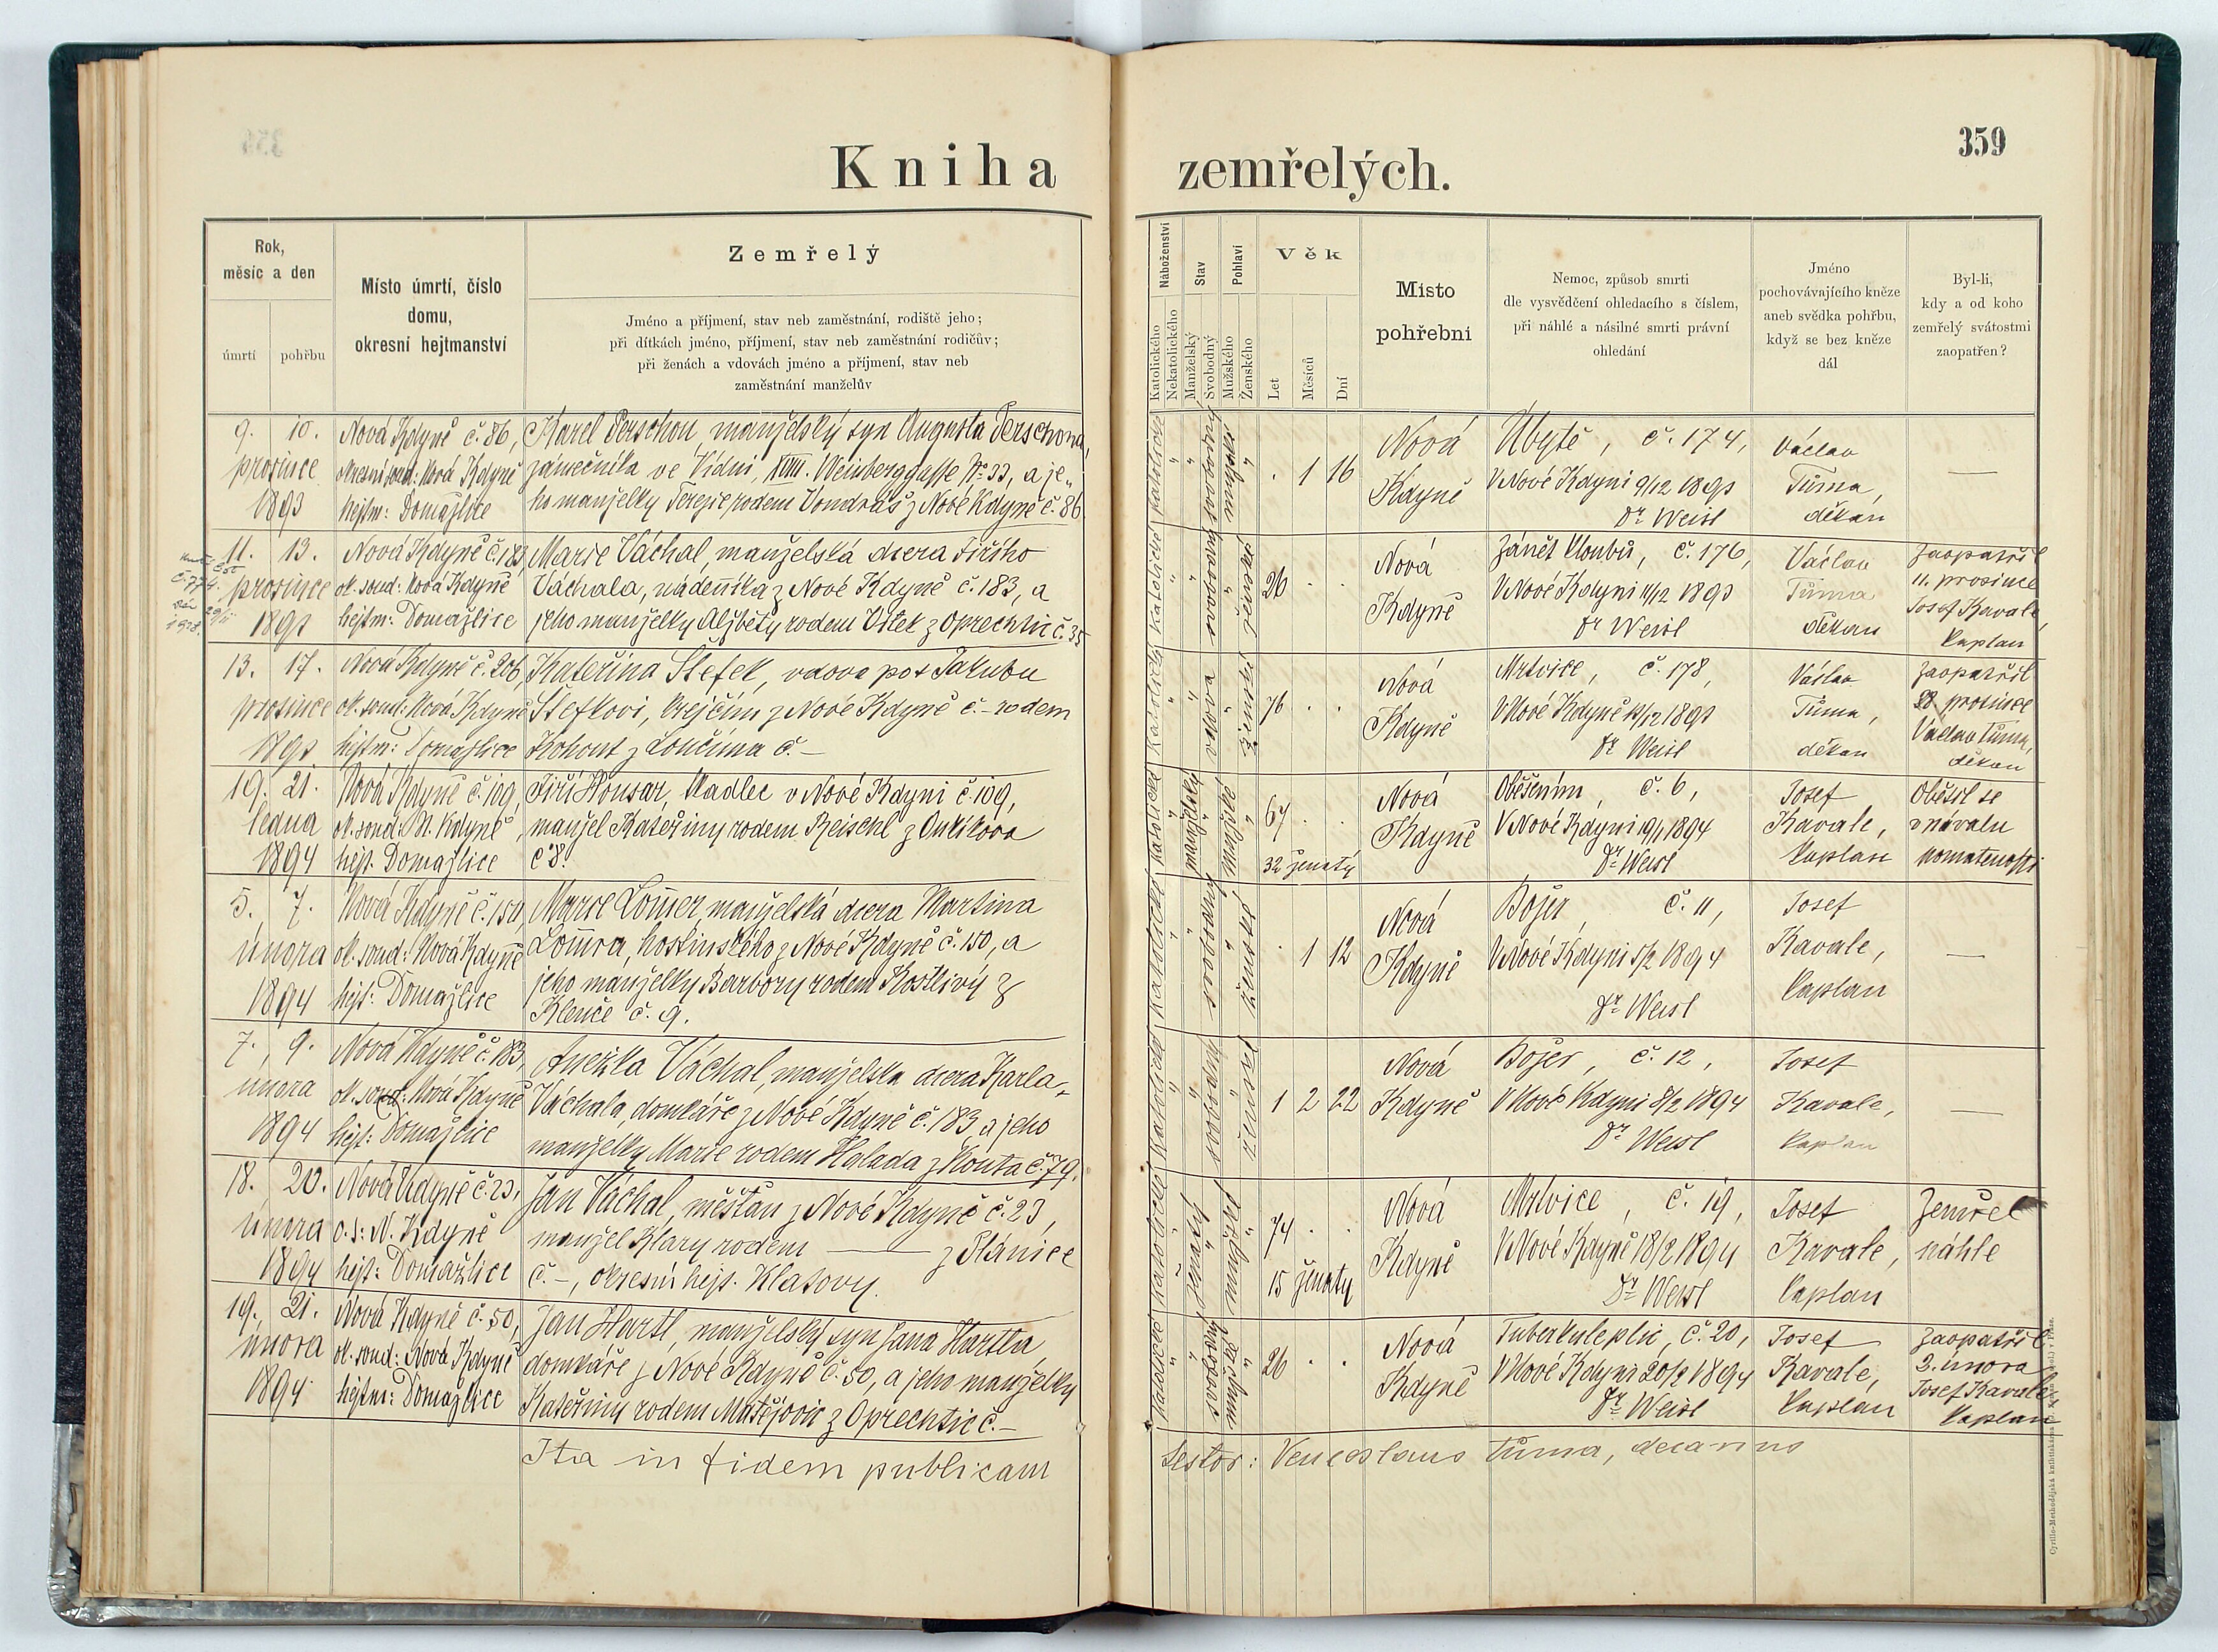 359
Kniha zemřelých.
Rok,
měsíc a den
úmrtí
pohřbu
Místo úmrtí, číslo
domu,
okresní hejtmanství
Zemřelý
Jméno a příjmení, stav neb zaměstnání, rodiště jeho;
při dítkách jméno, příjmení, stav neb zaměstnání rodičův;
při ženách a vdovách jméno a příjmení, stav neb
zaměstnání manželův
Náboženství
Katolického
Nekatolického
Stav
Manželský
Svobodný
Pohlaví
Mužského
Ženského
Věk
Let
Měsíců
Dní
Místo
pohřební
Nemoc, způsob smrti
dle vysvědčení ohledacího s číslem,
při náhlé a násilné smrti právní
ohledání
Jméno
pochovávajícího kněze
aneb svědka pohřbu,
když se bez kněze
dál
Byl-li,
kdy a od koho
zemřelý svátostmi
zaopatřen?
9. 10.
prosince
1893
Nová Kdyně č. 86,
okresní soud: Nová Kdyně
hejtm: Domažlice
Karel Perschon, manželský syn Augusta Perschona,
zámečníka ve Vídni, XVIII. Weinberggasse No 33, a je„
ho manželky Terezie rodem Vondráš z Nové Kdyně č. 86.
katolické
svobodný
mužské
. 1 16
Nová
Kdyně
Úbytě, č. 174,
V Nové Kdyni 9/12 1893
Dr Weisl
Václav
Tůma,
děkan
—
11. 13.
prosince
1893
Nová Kdyně č. 183,
ok. soud: Nová Kdyně
hejtm: Domažlice
Marie Váchal, manželská dcera Jiřího
Váchala, nádeníka z Nové Kdyně č. 183, a
jeho manželky Alžběty rodem Vlček z Oprechtic č. 35
katolické
svobodná
ženské
26 . .
Nová
Kdyně
Zánět kloubů, č. 176,
V Nové Kdyni 11/12 1893
Dr Weisl
Václav
Tůma
děkan
Zaopatřil
11. prosince
Josef Kavale,
kaplan
13. 17.
prosince
1893
Nová Kdyně č. 206,
ok. soud: Nová Kdyně
hejtm: Domažlice
Kateřina Štefek, vdova po † Jakubu
Štefkovi, krejčím z Nové Kdyně č. – rodem
Kohout z Loučima č. –
katolické
vdova
ženské
76 . .
Nová
Kdyně
Mrtvice, č. 178,
V Nové Kdyně 13/12 1893
Dr Weisl
Václav
Tůma,
děkan
Zaopatřil
prosince
Václav Tůma,
děkan
19. 21.
ledna
1894
Nová Kdyně č. 109,
ok. soud: N. Kdyně,
hejt. Domažlice
Jiří Housar, tkadlec v Nové Kdyni č. 109,
manžel Kateřiny rodem Reischl z
č 8.
katolické
manželský
mužské
67 . .
32 ženatý
Nová
Kdyně
Oběšením, č. 6,
V Nové Kdyni 19/1 1894
Dr Weisl
Josef
Kavale,
kaplan
Oběsil se
v návalu
pomatenosti
5. 7.
února
1894
Nová Kdyně č. 150,
ok. soud: Nová Kdyně
hejt: Domažlice
Marie Lom̄er, manželská dcera Martina
Lom̄ra, hostinského z Nové Kdyně č. 150, a
jeho manželky Barbory rodem Kostlivý z
Klenče č. 9.
katolické
svobodný
ženské
. 1 12
Nová
Kdyně
Božec, č. 11,
V Nové Kdyni 5/2 1894
Dr Weisl
Josef
Kavale,
kaplan
—
7. 9.
února
1894
Nová Kdyně č. 183,
ok. soud: Nová Kdyně
hejt: Domažlice
Anežka Váchal, manželska dcera Karla
Váchala, domkáře z Nové Kdyně č. 183, a jeho
manželky Marie rodem Halada z Kouta č. 79.
katolické
svobodný
ženské
1 2 22
Nová
Kdyně
Božec, č. 12,
V Nové Kdyni 8/2 1894
Dr Weisl
Josef
Kavale,
kaplan
—
18. 20.
února
1894
Nová Kdyně č. 23,
o. s: N. Kdyně
hejt: Domažlice
Jan Váchal, měšťan z Nové Kdyně č. 23,
manžel Klary rodem —— z Plánice
č. –, okresní hejt. Klatovy.
katolické
ženatý
mužské
74 . .
15 ženatý
Nová
Kdyně
Mrtvice, č. 19,
V Nové Kdyně 18/2 1894
Dr Weisl
Josef
Kavale,
kaplan
Zemřel
náhle
19. 21.
února
1894
Nová Kdyně č. 50,
ok. soud: Nová Kdyně
hejtm: Domažlice
Jan Hartl, manželský syn Jana Hartla,
domkáře z Nové Kdyně č. 50, a jeho manželky
Kateřiny rodem Matějovic z Oprechtic č. –
katolické
svobodný
mužské
26 . .
Nová
Kdyně
č. 20,
V Nové Kdyni 20/2 1894
Dr Weisl
Josef
Kavale,
kaplan
Zaopatřil
2. února
Josef Kavale
kaplan
Ita in fidem publicam
testor: Venceslaus Tůma, decanus